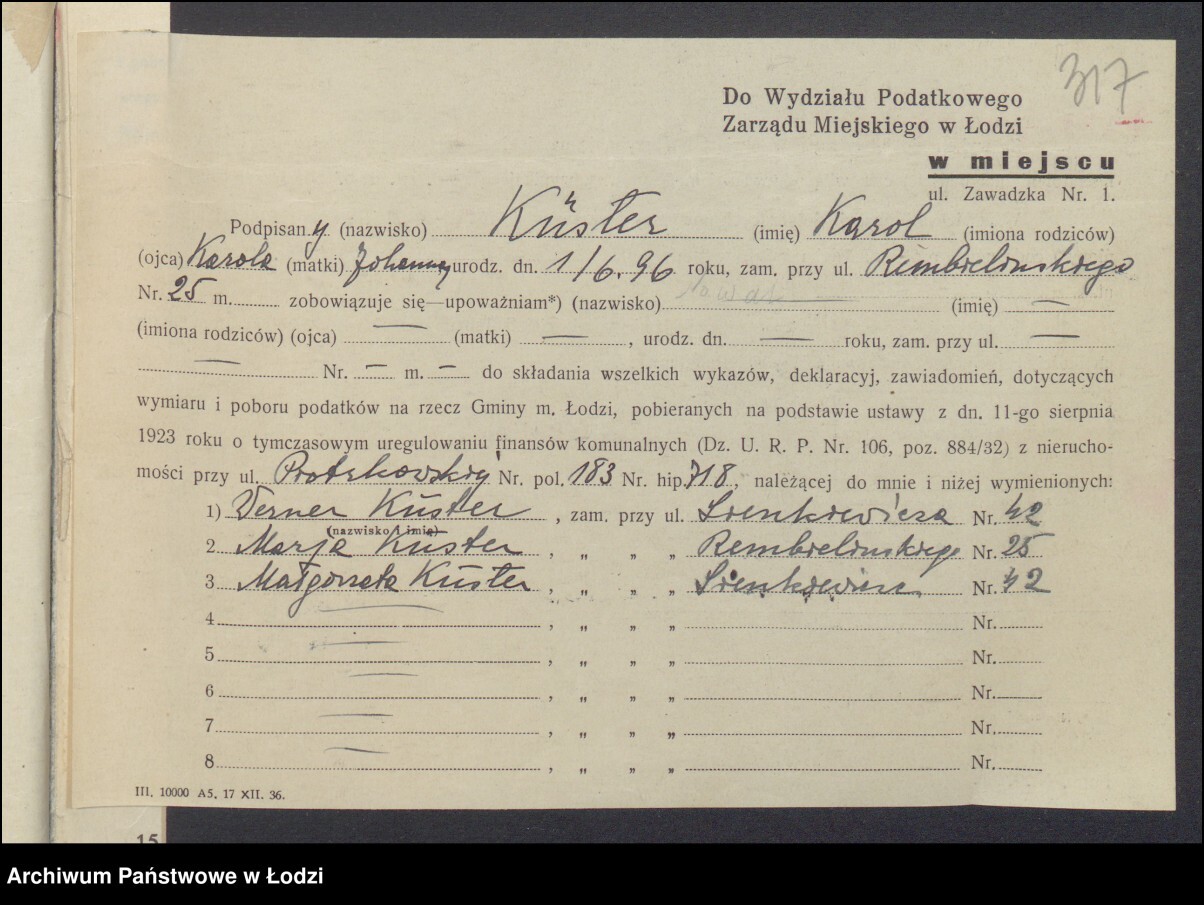 317
Do Wydziału Podatkowego
Zarządu Miejskiego w Łodzi
w miejscu
ul. Zawadzka Nr. 1.
Podpisany (nazwisko) Küster (imię) Karol (imiona rodziców)
(ojca) Karola (matki) Johanny urodz. dn. 1/6.96 roku, zam. przy ul. Rembielinskiego
Nr. 25 m. zobowiązuje się—upoważniam*) (nazwisko) (imię) —
(imiona rodziców) (ojca) — (matki) — , urodz. dn. — roku, zam. przy ul. —
— Nr. — m. — do składania wszelkich wykazów, deklaracyj, zawiadomień, dotyczących
wymiaru i poboru podatków na rzecz Gminy m. Łodzi, pobieranych na podstawie ustawy z dn. 11-go sierpnia
1923 roku o tymczasowym uregulowaniu finansów komunalnych (Dz. U. R. P. Nr. 106, poz. 884/32) z nierucho-
mości przy ul. Piotrkowskiej Nr. pol. 183 Nr. hip. 718, należącej do mnie i niżej wymienionych:
1) Verner Küster , zam. przy ul. Sienkiewicza Nr. 42
(nazwisko i imię)
2 Marja Küster , „ „ „ Rembielinskiego Nr. 25
3 Małgorzata Küster , „ „ „ Sienkiewicza Nr. 42
4 — , „ „ „ Nr.
5 — , „ „ „ Nr.
6 — , „ „ „ Nr.
7 — , „ „ „ Nr.
8 — , „ „ „ Nr.
III. 10000 A5. 17 XII. 36.
15
Archiwum Państwowe w Łodzi